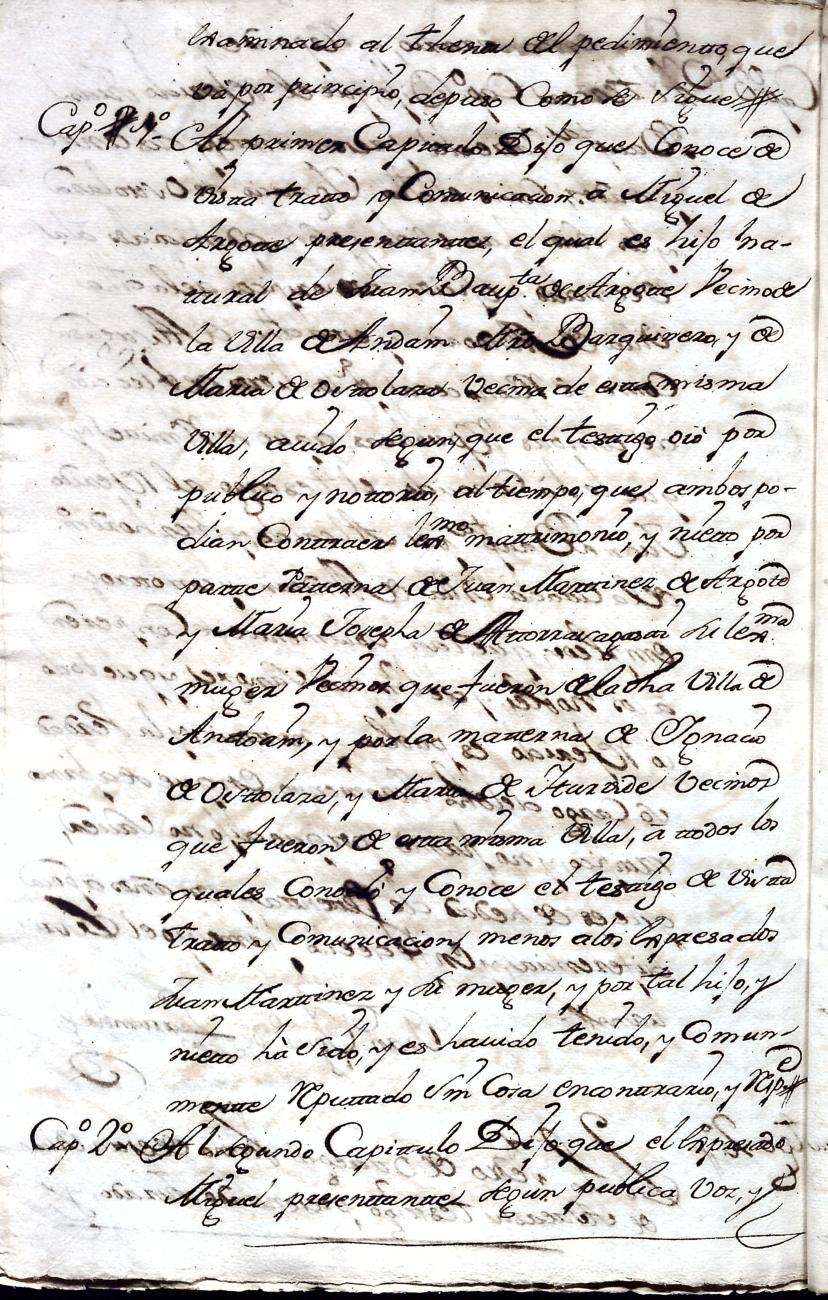 examinado al thenor del pedimiento, que
và por principio, depuso Como se sigue
Cap.º 1º Al primer Capitulo Dijo que Conoce de
vista tratto y Comunicacion à Miguel de
Argotte presenttante, el qual es hijo na-
ttural de Juan Baup.ta de Argotte Vecino de
la Villa de Andoain Barquinero, y de
Maria de Ostolaza Vecina de esta misma
Villa, avido segun, que el testigo oiò por
publico y nottorio, al tiempo, que ambos po-
dian Conttraer lex.mo mattrimonio, y nietto por
partte Patterna de Juan Marttinez de Argote
y Maria Josepha de Atorrasagasti su lex.ma
muger Vecinos que fueron de la dha Villa de
Andoain, y por la matterna de Ignacio
de Ostolaza, y Maria de Iturbide Vecinos
que fueron de esta misma Villa, a ttodos los
quales Conociò y Conoce el testigo de vista
tratto y Comunicacion, menos alos expresados
Juan Marttinez y su muger, y por tal hijo, y
nietto hà sido, y es havido tenido, y Comun-
mente Reputtado sin Cosa enconttrario, y Resp.de
Cap.º 2º Al segundo Capittulo Dijo que el expresado
Miguel presenttante segun publica voz, y